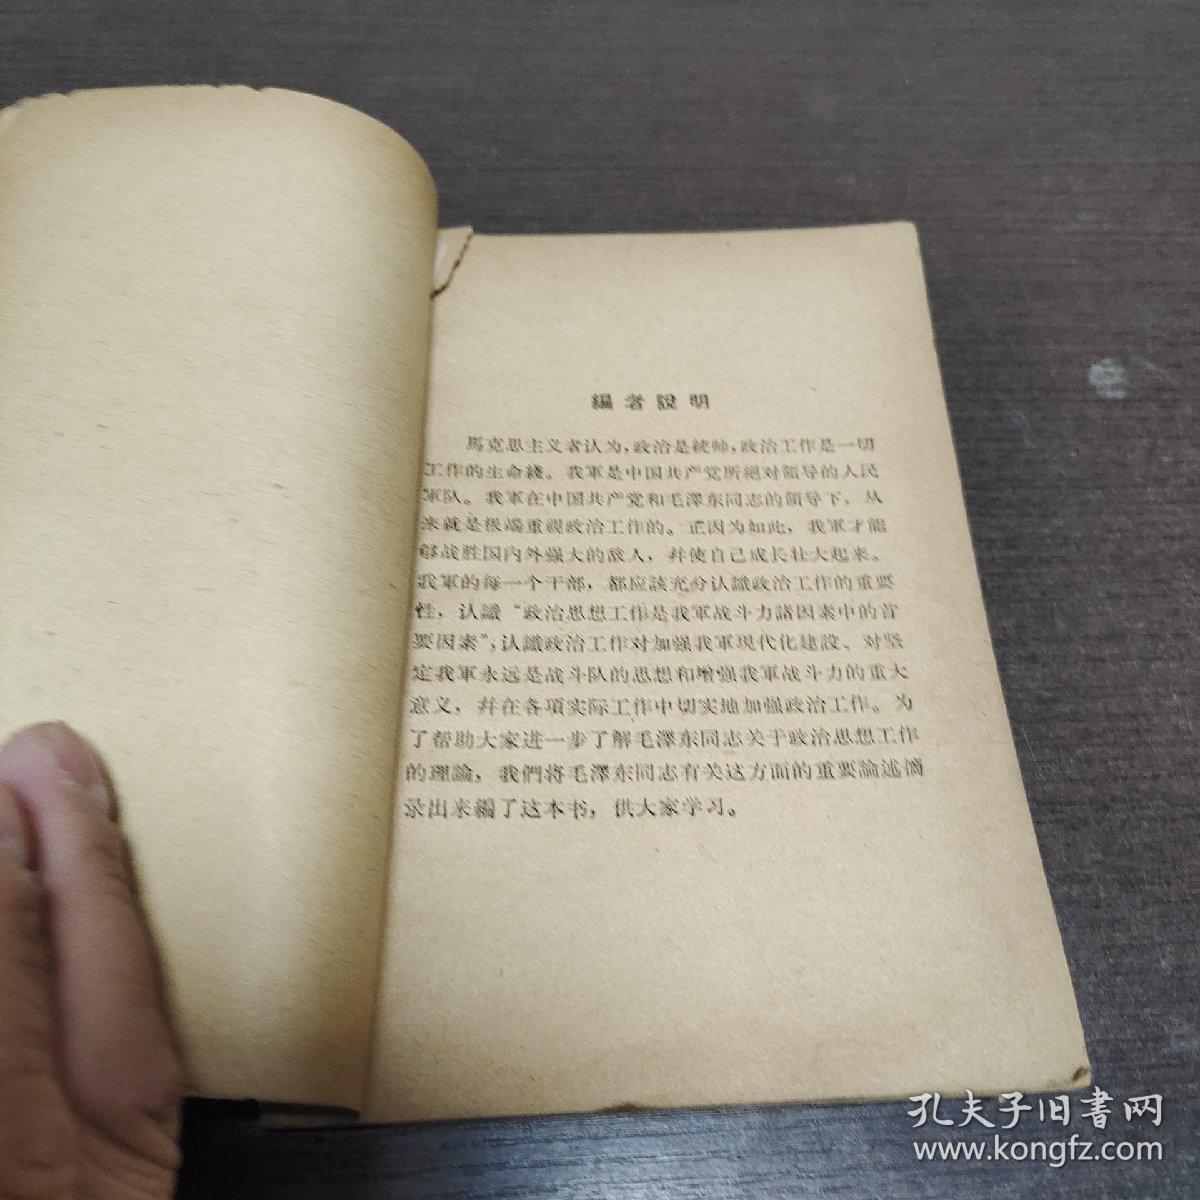 編者說明
馬克思主义者认为，政治是統帅，政治工作是一切
工作的生命綫。我軍是中国共产党所絕对領导的人民
軍队。我軍在中国共产党和毛澤东同志的領导下，从
来就是很端重視政治工作的。正因为如此，我軍才能
够战胜国内外强大的敌人，幷使自己成长壮大起来。
我軍的每一个干部，都应該充分认識政治工作的重要
性，认識“政治思想工作是我軍战斗力諸因素中的首
要因素”；认識政治工作对加强我軍現代化建設、对坚
定我軍永远是战斗队的思想和增强我軍战斗力的重大
意义，幷在各項实际工作中切实地加强政治工作。为
了帮助大家进一步了解毛澤东同志关于政治思想工作
的理論，我們将毛澤东同志有关这方面的重要論述摘
录出来編了这本书，供大家学习。
孔夫子旧書网
www.kongfz.com